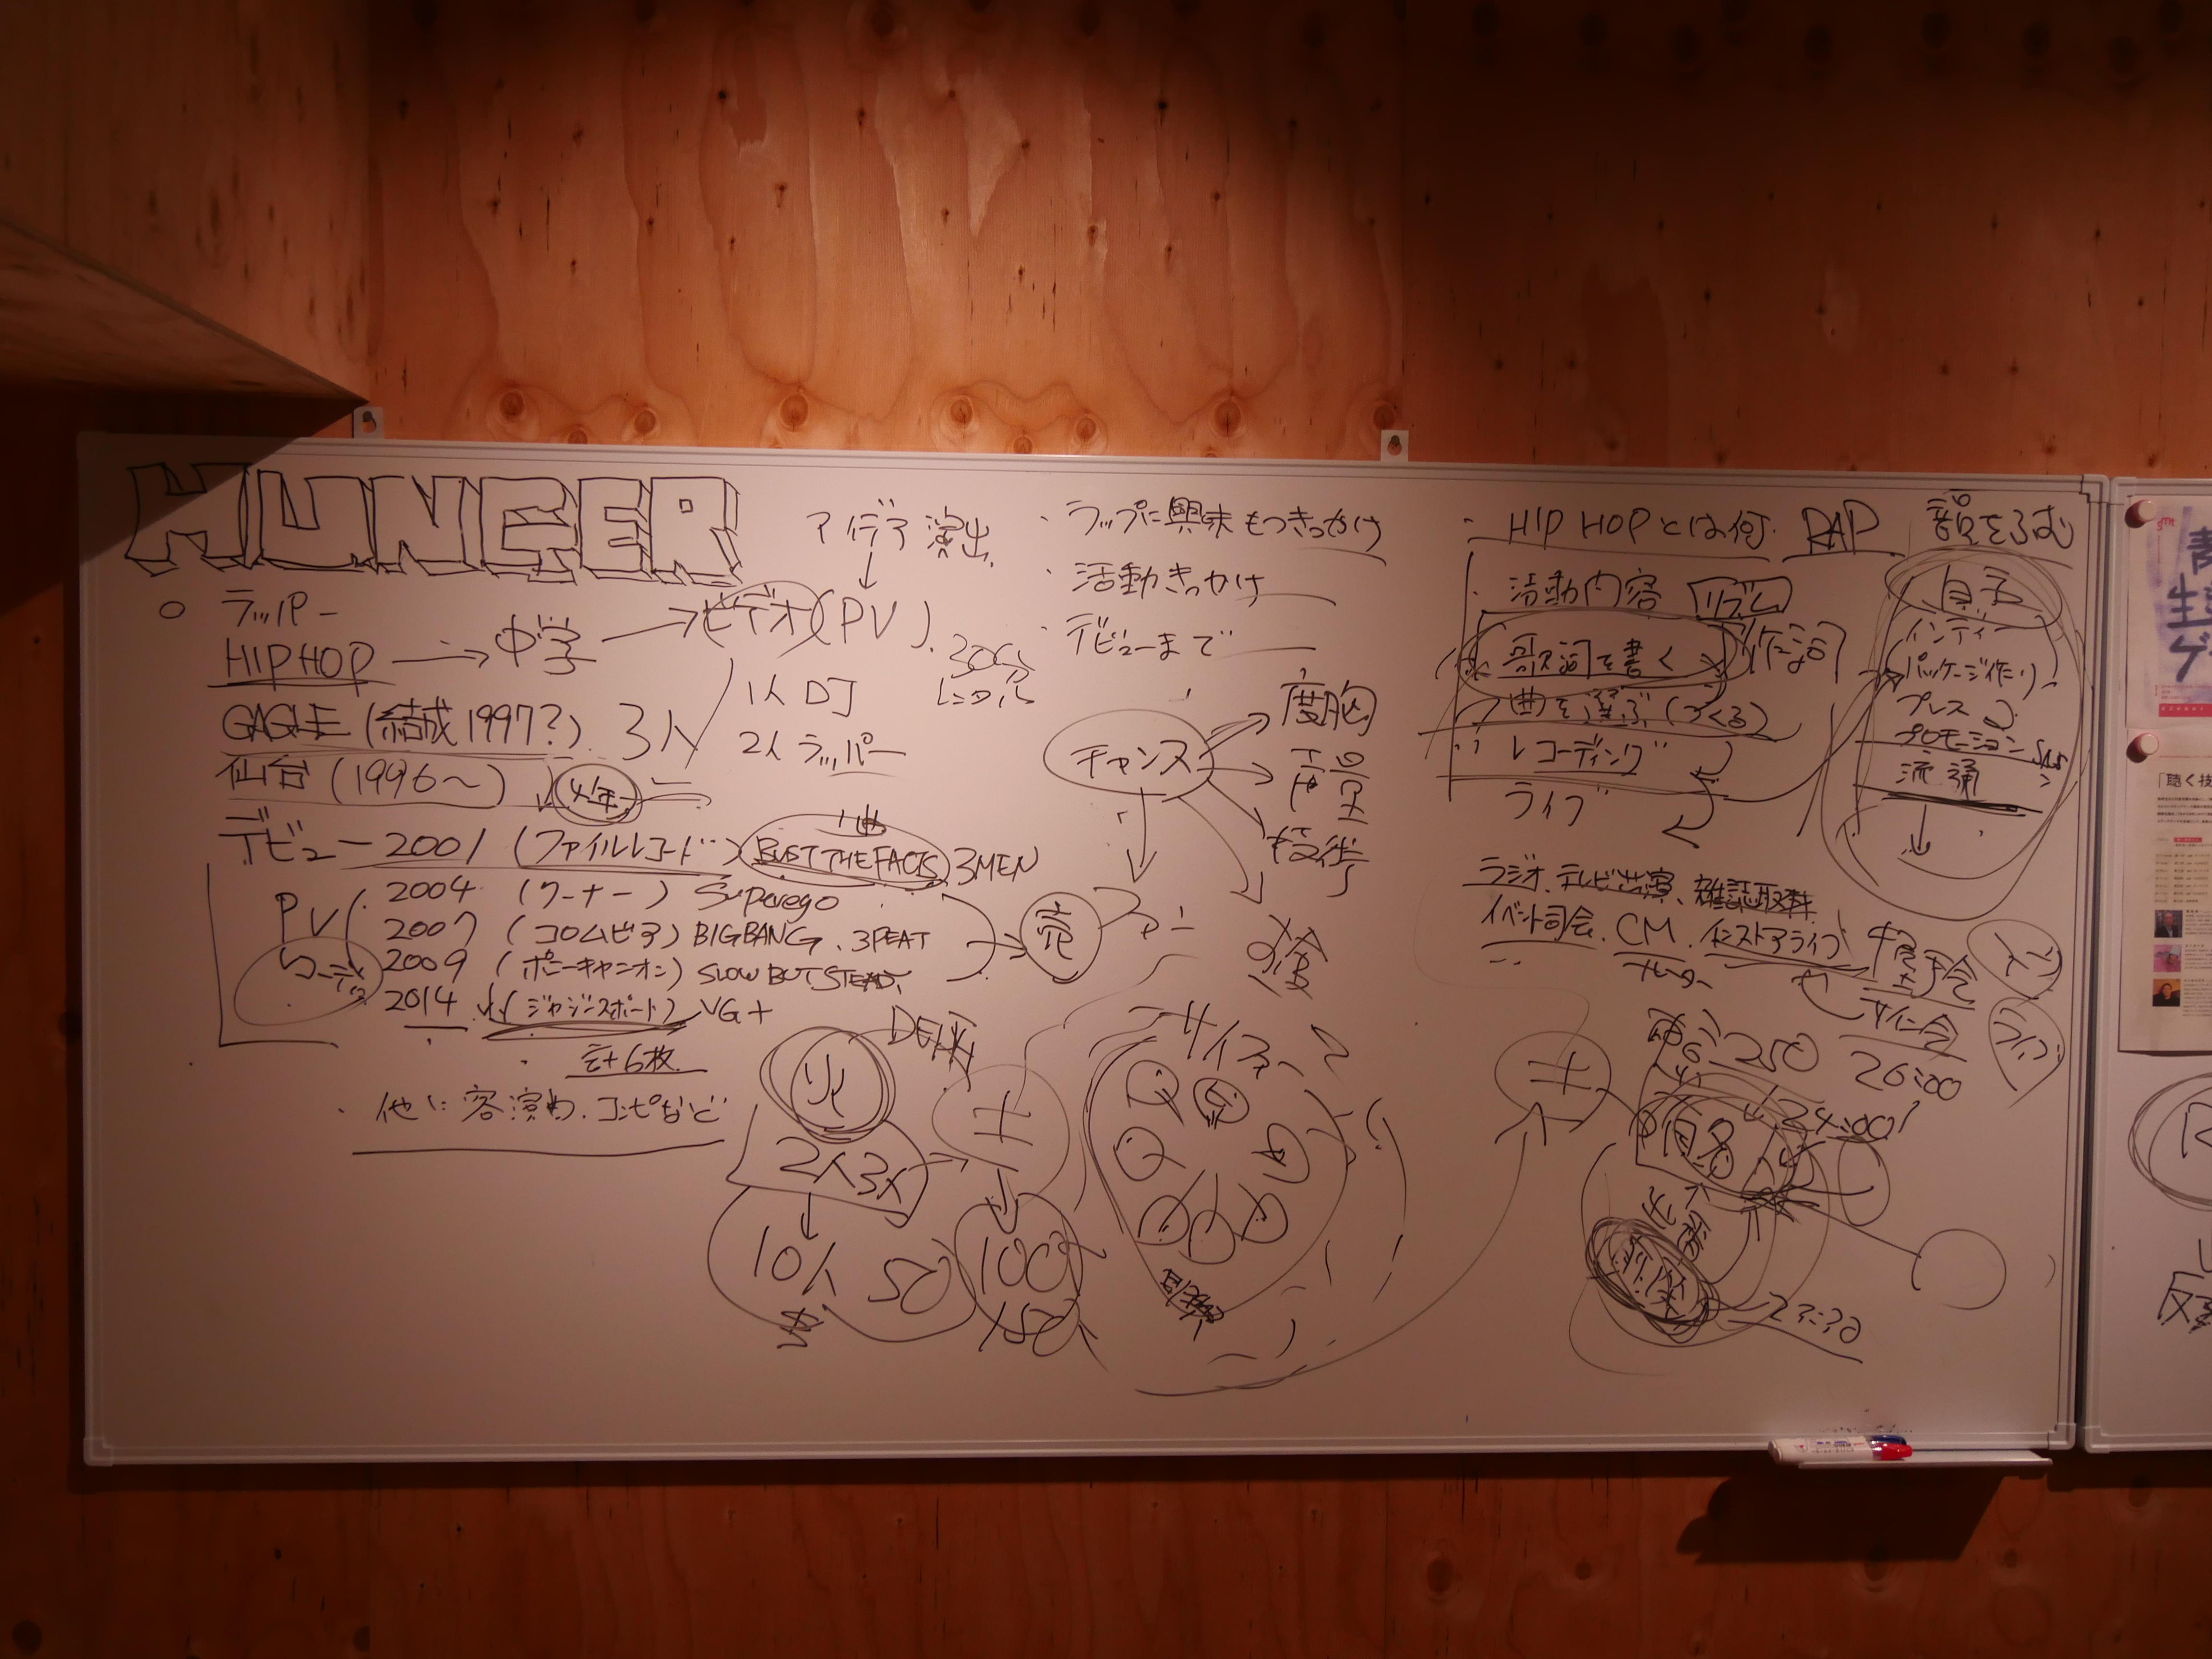 HUNGER
ラッパー
HIPHOP → 中学 → ビデオ (PV).
アイデア 演出
300分
レンタル
GAGLE (結成1997?). 3人
1人 DJ
2人 ラッパー
仙台 (1996〜)
4年
デビュー 2001 (ファイルレコード) BUST THE FACTS. 3MEN
PV
2004 (ワーナー) Superego
2007 (コロムビア) BIG BANG. 3PEAT
2009 (ポニーキャニオン) SLOW BUT STEADY.
2014 (ジャジースポート) VG+
計6枚
・他に 客演や. コンピなど
・ラップに興味もつきっかけ
・活動きっかけ
・デビューまで
チャンス
度胸
声量
技術
売
火
2人 3人
10人 50
土
100
150
サイファー
・HIP HOPとは何. RAP 韻をふむ
・活動内容 リズム
歌詞を書く 作詞
曲を選ぶ (つくる)
レコーディング
ライブ
自主
インディー
パッケージ作り
プレス
プロモーション SNS
流通
ラジオ. テレビ出演、雑誌取材
イベント司会. CM. インストアライブ
ナレーター
握手会
サイン会
ライブ
土
250 26:00
24:00
23:30
「聴く技
smt